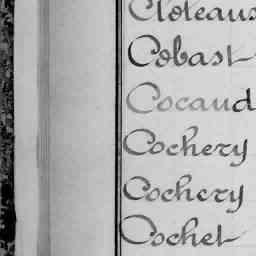 Cloteaus
Cobast
Cocaud
Cochery
Cochery
Cochet